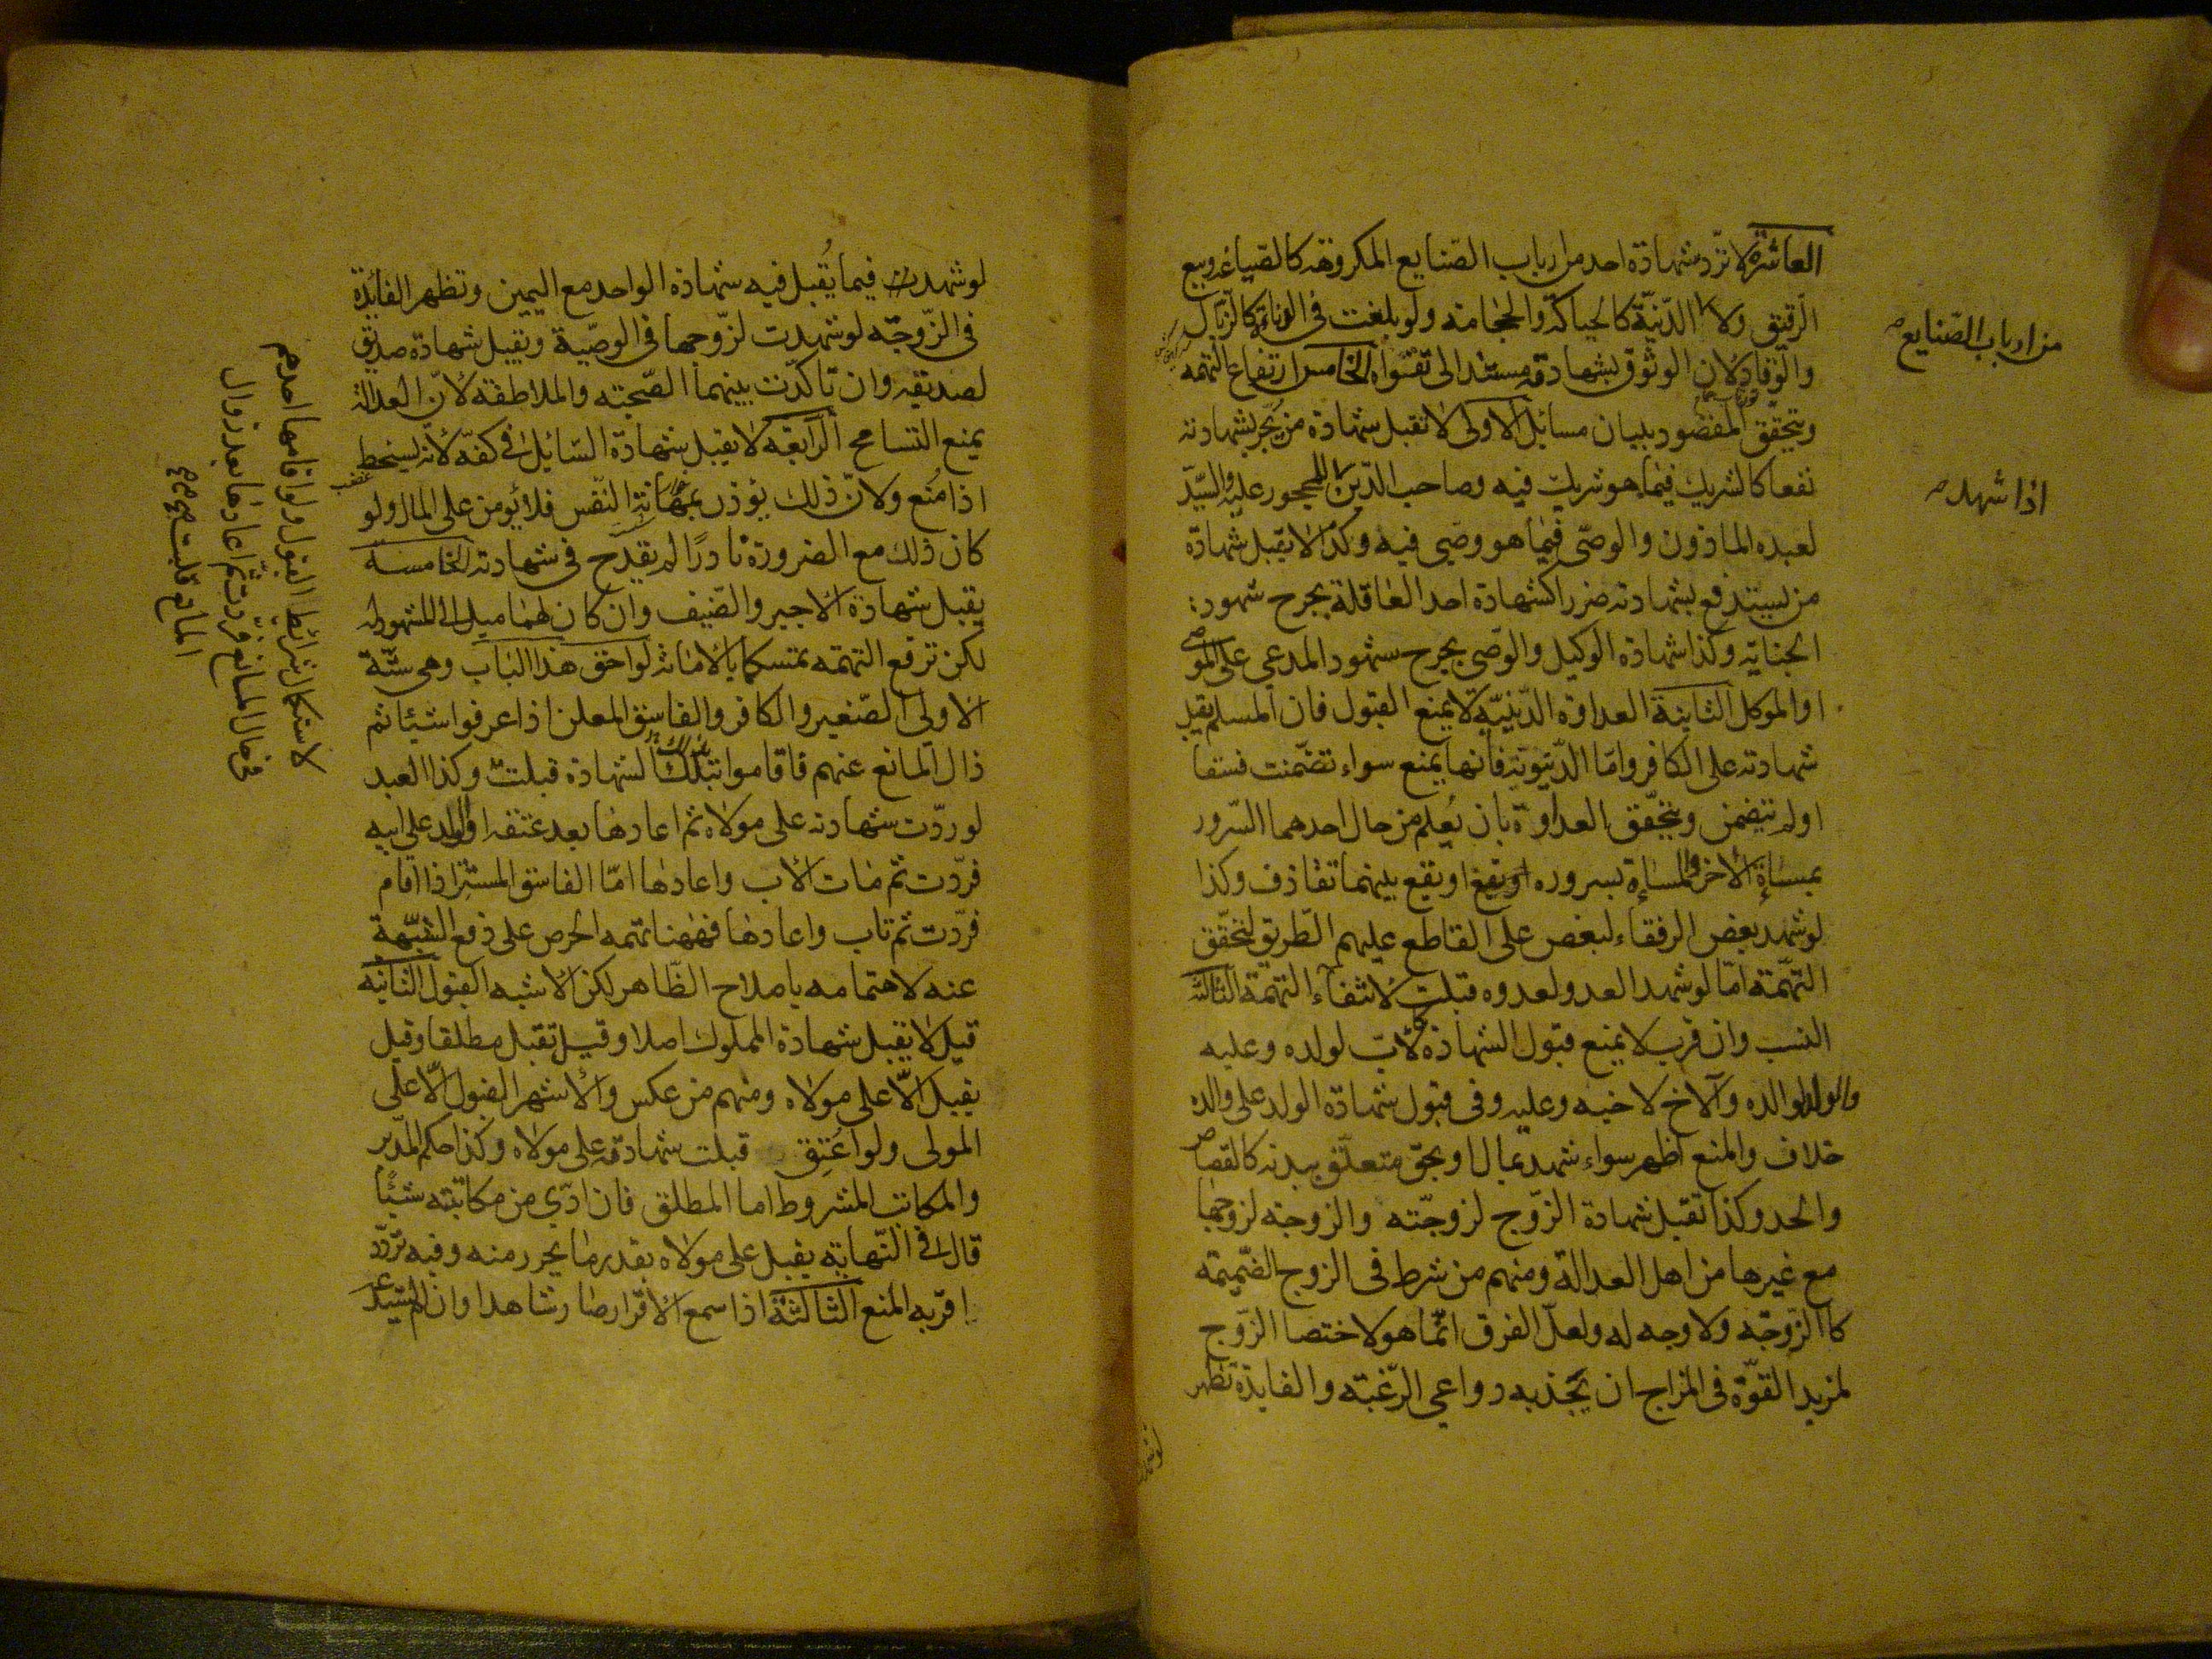 العاشرة لا ترد شهادة احد من ارباب الصنايع المكروهة كالصياغه وبيع
الرقيق ولا الدنيّة كالحياكة والحجامة ولو بلغت في الدناءة كالزبال
والوقاد لان الوثوق بشهادته مستند الى تقواه الخامس ارتفاع التهمه
ويتحقق المقصود ببيان مسائل الاولى لا تقبل شهادة من يجر بشهادته
نفعا كالشريك فيما هو شريك فيه وصاحب الدين للمحجور عليه والسيّد
لعبده الماذون والوصي فيما هو وصي فيه وكذا لا يقبل شهادة
من يستدفع بشهادته ضررا كشهادة احد العاقلة بجرح شهود
الجناية وكذا شهادة الوكيل والوصي بجرح شهود المدعي على الموصي
او الموكل الثانية العداوة الدينيّة لا يمنع القبول فان المسلم يقبل
شهادته على الكافر وامّا الدنيوية فانها يمنع سواء تضمنت فسقا
او لم تتضمن ويتحقق العداوة بان يُعلم من حال احدهما السّرور
بمساءة الاخر والمساءة بسروره او يقع بينهما تقاذف وكذا
لو شهد بعض الرفقاء لبعض على القاطع عليهم الطريق لتحقق
التهمة امّا لو شهد العدو لعدوه قبلت لانتفاء التهمة الثالثة
النسب وان قرب لا يمنع قبول الشهادة كالاب لولده وعليه
والولد لوالده والاخ لاخيه وعليه وفي قبول شهادة الولد على والده
خلاف والمنع اظهر سواء شهد بمال او بحق متعلّق ببدنه كالقصاص
والحد وكذا تقبل شهادة الزوج لزوجته والزوجة لزوجها
مع غيرها من اهل العدالة ومنهم من شرط في الزوج الضميمة
كالزوجه ولا وجه له ولعلّ الفرق انّما هو لاختصا الزوج
لمزيد القوّة في المزاج ان يجذبه دواعي الرّغبة والفايدة تظهر
من ارباب الصنايع
اذا شهد
لو شهدت فيما يُقبل فيه شهادة الواحد مع اليمين وتظهر الفائدة
في الزّوجة لو شهدت لزوجها في الوصيّة ويقبل شهادة صديق
لصديقه وان تاكدت بينهما الصّحبة والملاطفة لانّ العدالة
يمنع التسامح الرابعة لا يقبل شهادة السّائل في كفّه لانه يسخط
اذا مُنع ولانّ ذلك يؤذن بمهانة النّفس فلا يؤمن على المال ولو
كان ذلك مع الضرورة نادرًا لم يقدح في شهادته الخامسة
يقبل شهادة الاجير والضيف وان كان لهما ميل الى المشهود له
لكن ترفع التهمة تمسكا بالامانة لواحق هذا الباب وهي ستّة
الاولى الصّغير والكافر والفاسق المعلن اذا عرفوا شيئا ثم
زال المانع عنهم فاقاموا تلك الشهادة قبلت وكذا العبد
لو ردّت شهادته على مولاه ثم اعادها بعد عتقه او الولد على ابيه
فردّت ثم مات الاب واعادها امّا الفاسق المستتر اذا اقام
فردّت ثم تاب واعادها فههنا تهمة الحرص على دفع الشبهة
عنه لاهتمامه باصلاح الظّاهر لكن الاشبه القبول الثانيه
قيل لا يقبل شهادة المملوك اصلا وقيل تقبل مطلقا وقيل
يقبل الّا على مولاه ومنهم من عكس والاشهر القبول الّا على
المولى ولو اُعتق قبلت شهادته على مولاه وكذا حكم المدبر
والمكاتب المشروط اما المطلق فان ادّى من مكاتبته شيئًا
قال في النّهاية يقبل على مولاه بقدر ما تحرر منه وفيه تردّد
اقربه المنع الثالثة اذا سمع الاقرار صار شاهدا وان لم يستدع
لاستكمال شرائط القبول ولو اقامها احدهم
في حال المانع فردّت ثم اعادها بعد زوال
المانع قبلت